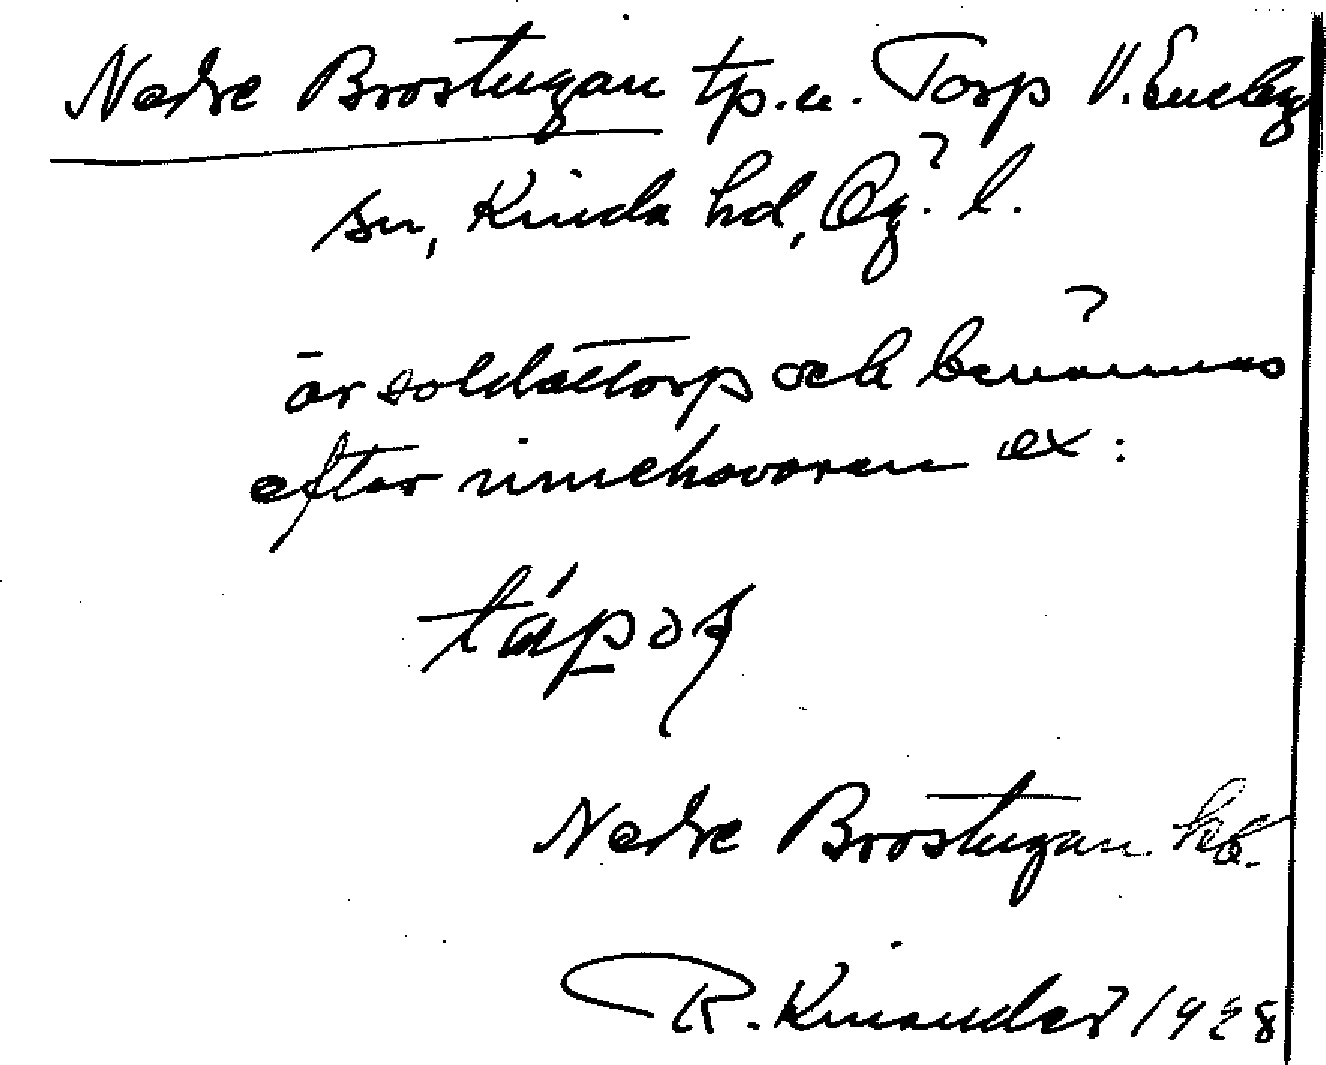 Nedre Brostugan tp. u. Torp V. Eneby
sn, Kinda hd, Ög. l.
är soldattorp och benämnes
efter innehavaren ex:
Nedre Brostugan kb.
R. Kinander 1928